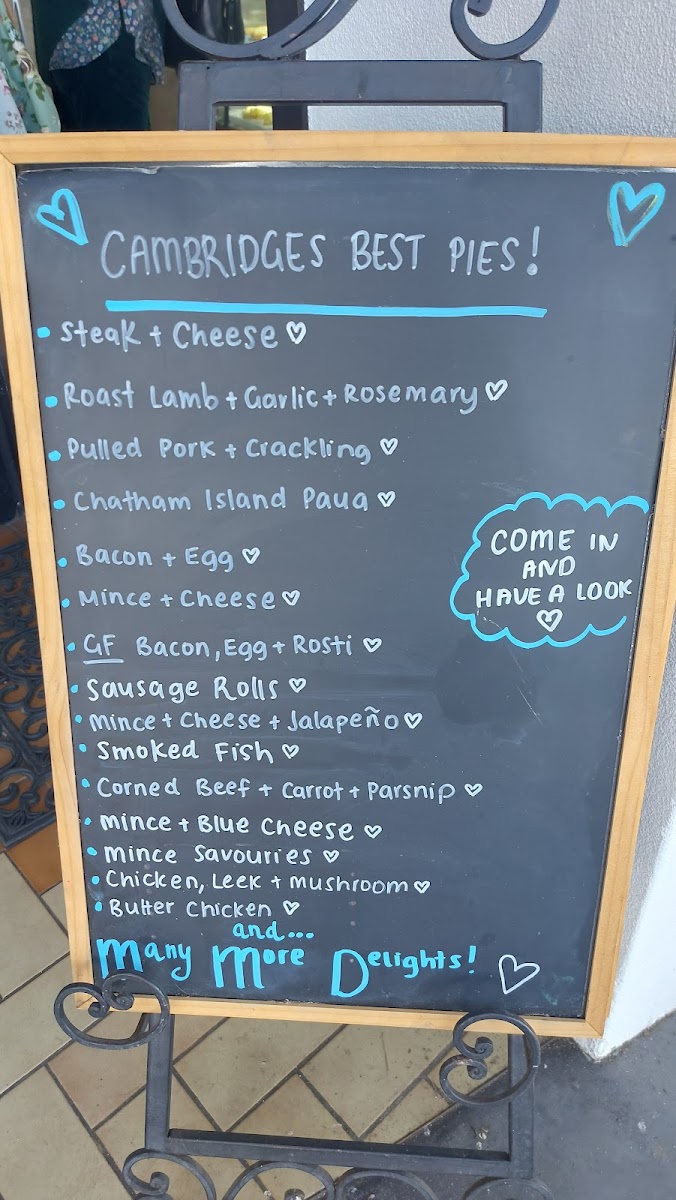 CAMBRIDGES BEST PIES!
Steak + Cheese
Roast Lamb + Garlic + Rosemary
Pulled Pork + Crackling
Chatham Island Paua
Bacon + Egg
Mince + Cheese
GF Bacon, Egg + Rosti
Sausage Rolls
Mince + Cheese + Jalapeño
Smoked Fish
Corned Beef + Carrot + Parsnip
Mince + Blue Cheese
Mince Savouries
Chicken, Leek + Mushroom
Butter Chicken
and...
Many More Delights!
COME IN
AND
HAVE A LOOK